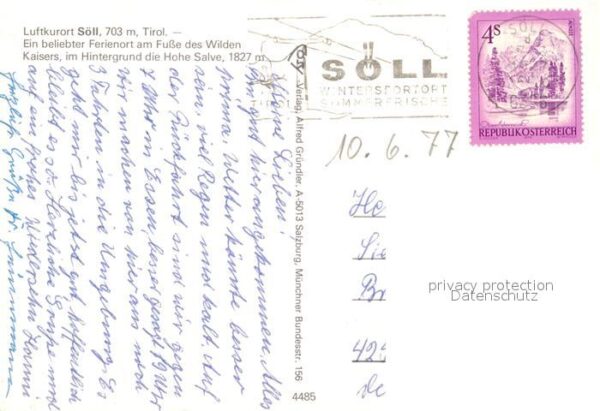 Luftkurort Söll, 703 m, Tirol. —
Ein beliebter Ferienort am Fuße des Wilden
Kaisers, im Hintergrund die Hohe Salve, 1827 m
SÖLL
WINTERSPORTORT
SOMMERFRISCHE
4S
REPUBLIK ÖSTERREICH
10.6.77
Verlag Alfred Gründler, A-5013 Salzburg, Münchner Bundesstr. 156
4485
Lieben!
gut hier angekommen. Alles
prima. Wetter könnte besser
sein, viel Regen und kalt. Auf
der Rückfahrt sind wir gegen
7 Uhr in Essen,
wir machen von hier aus noch
3 Fahrten in die Umgebung. Es
geht mir bis jetzt gut hoffentlich
bleibt es so. Herzliche Grüße und
auf frohes Wiedersehn
Grüße
privacy protection
Datenschutz